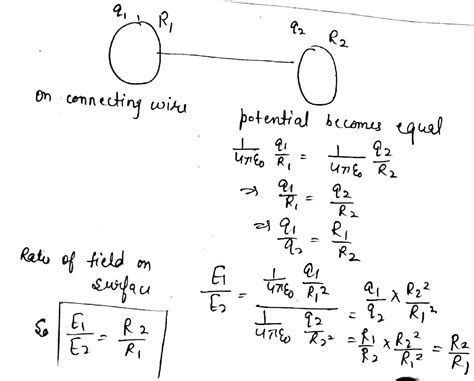 q₁ R₁
q₂ R₂
on connecting wire
potential becomes equal
1/4πε₀ q₁/R₁ = 1/4πε₀ q₂/R₂
⇒ q₁/R₁ = q₂/R₂
⇒ q₁/q₂ = R₁/R₂
Ratio of field on surface
E₁/E₂ = (1/4πε₀ q₁/R₁²)/(1/4πε₀ q₂/R₂²) = q₁/q₂ × R₂²/R₁²
= R₁/R₂ × R₂²/R₁² = R₂/R₁
So E₁/E₂ = R₂/R₁